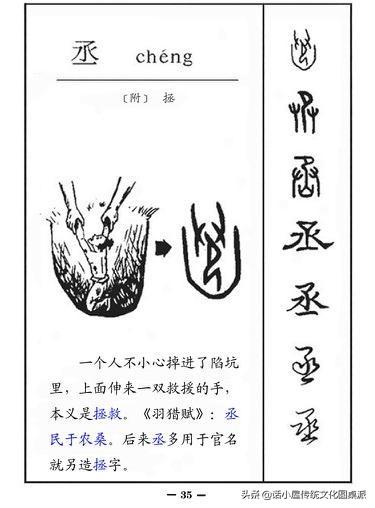 丞 chéng
〔附〕 拯
一个人不小心掉进了陷坑
里，上面伸来一双救援的手，
本义是拯救。《羽猎赋》：丞
民于农桑。后来丞多用于官名
就另造拯字。
— 35 —
头条 @诺小屋传统文化圆桌派